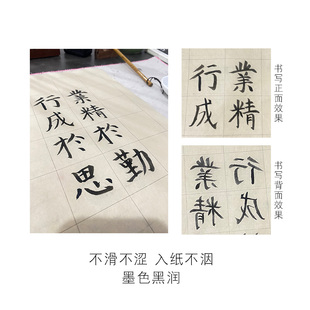 業精於勤
行成於思
業精
行成
书写正面效果
業精
行成
书写背面效果
不滑不涩 入纸不洇
墨色黑润